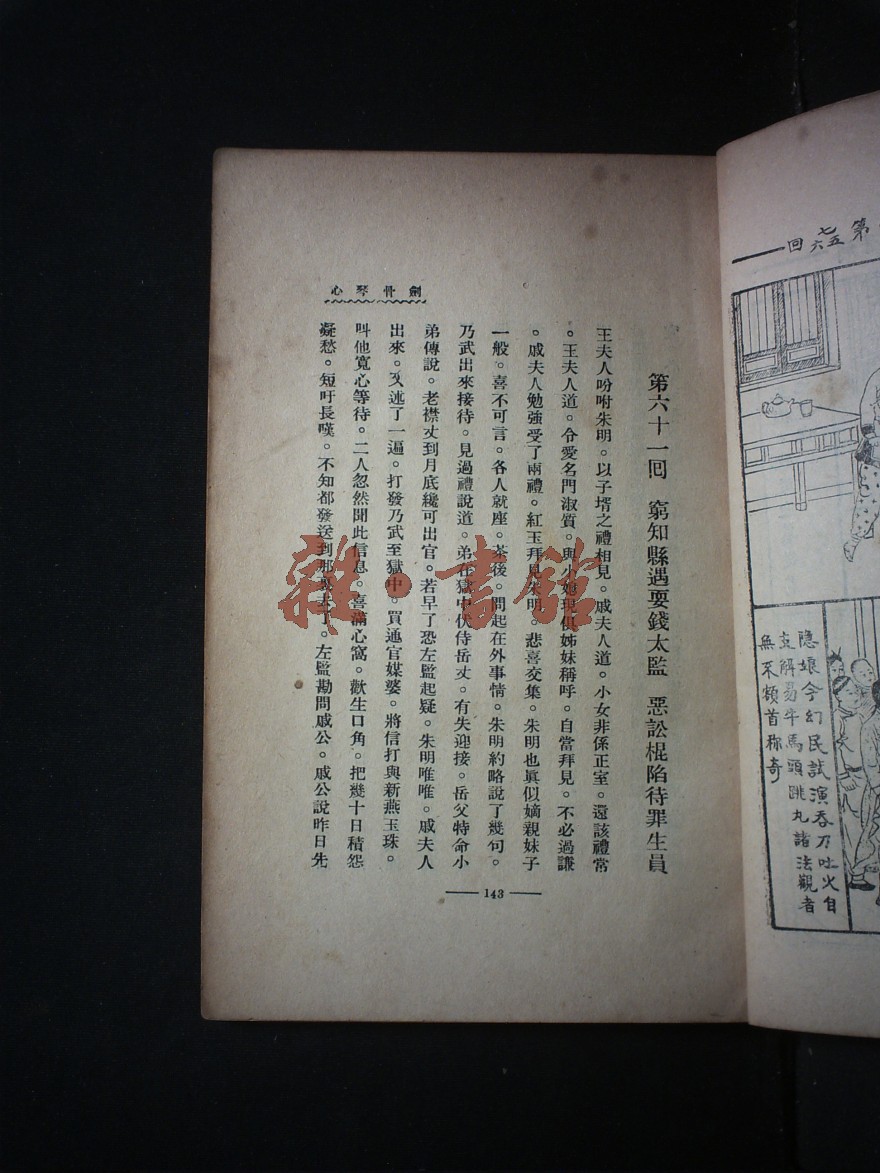 劍骨琴心
第六十一回 窮知縣遇耍錢太監 惡訟棍陷待罪生員
王夫人吩咐朱明。以子壻之禮相見。戚夫人道。小女非係正室。還該禮常
。王夫人道。令愛名門淑質。與小媳現俱姊妹稱呼。自當拜見。不必過謙
。戚夫人勉強受了兩禮。紅玉拜見朱明。悲喜交集。朱明也眞似嫡親妹子
一般。喜不可言。各人就座。茶後。問起在外事情。朱明約略說了幾句。
乃武出來接待。見過禮說道。弟在獄中伏侍岳丈。有失迎接。岳父特命小
弟傳說。老襟丈到月底纔可出官。若早了恐左監起疑。朱明唯唯。戚夫人
出來。又述了一遍。打發乃武至獄中。買通官媒婆。將信打與新燕玉珠。
叫他寬心等待。二人忽然聞此信息。喜滿心窩。歡生口角。把幾十日積怨
凝愁。短吁長嘆。不知都發送到那裏去了。左監勘問戚公。戚公說昨日先
143
雜·書館
第七五六回
隱娘今幻民試演吞刀吐火自
支解易牛馬頭跳丸諸法觀者
無不額首称奇